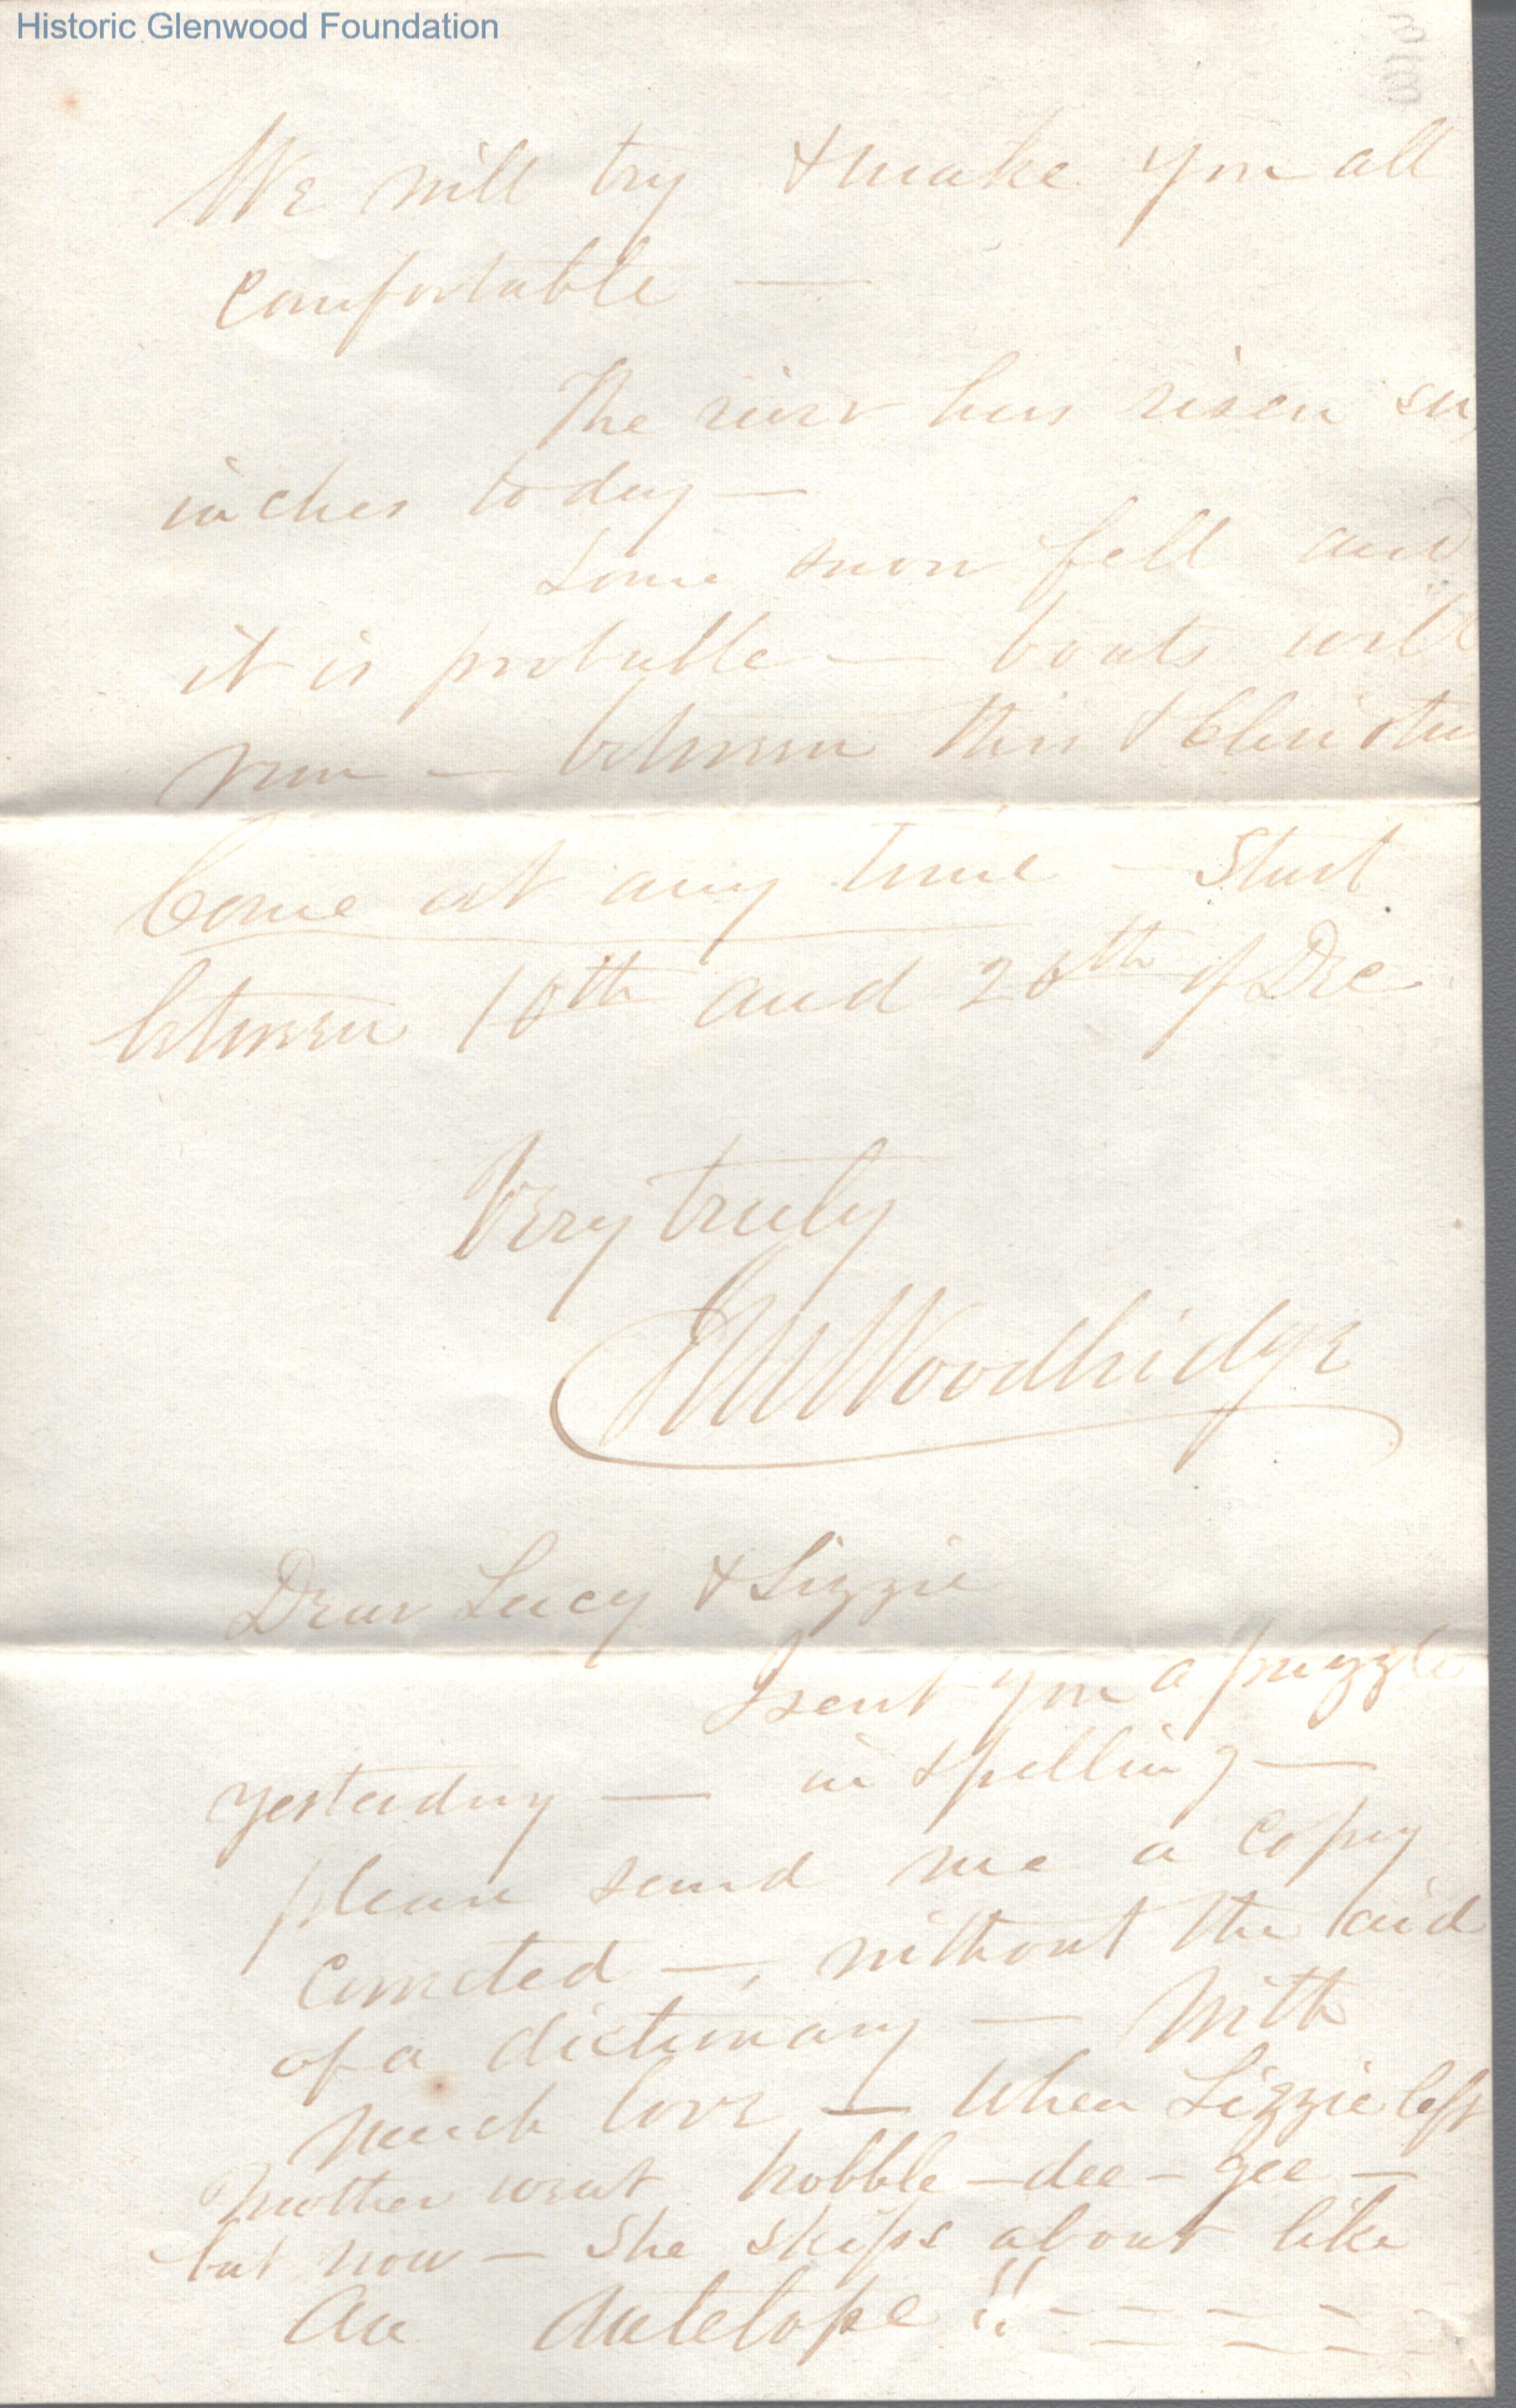 Historic Glenwood Foundation
We will try & make you all
comfortable —
The river has risen
inches today —
Some snow fell and
it is probable — boats will
run — between this &
Come at any time — Start
between 10th and 20th of Dec
Very truly
Woodbridge
Dear Lucy & Lizzie
I sent you a puzzle
yesterday — in spelling —
please send me a copy
corrected —, without the aid
of a dictionary — With
much love — When Lizzie left
Mother went hobble-dee-gee —
but now — She skips about like
an Antelope !! - - - - -